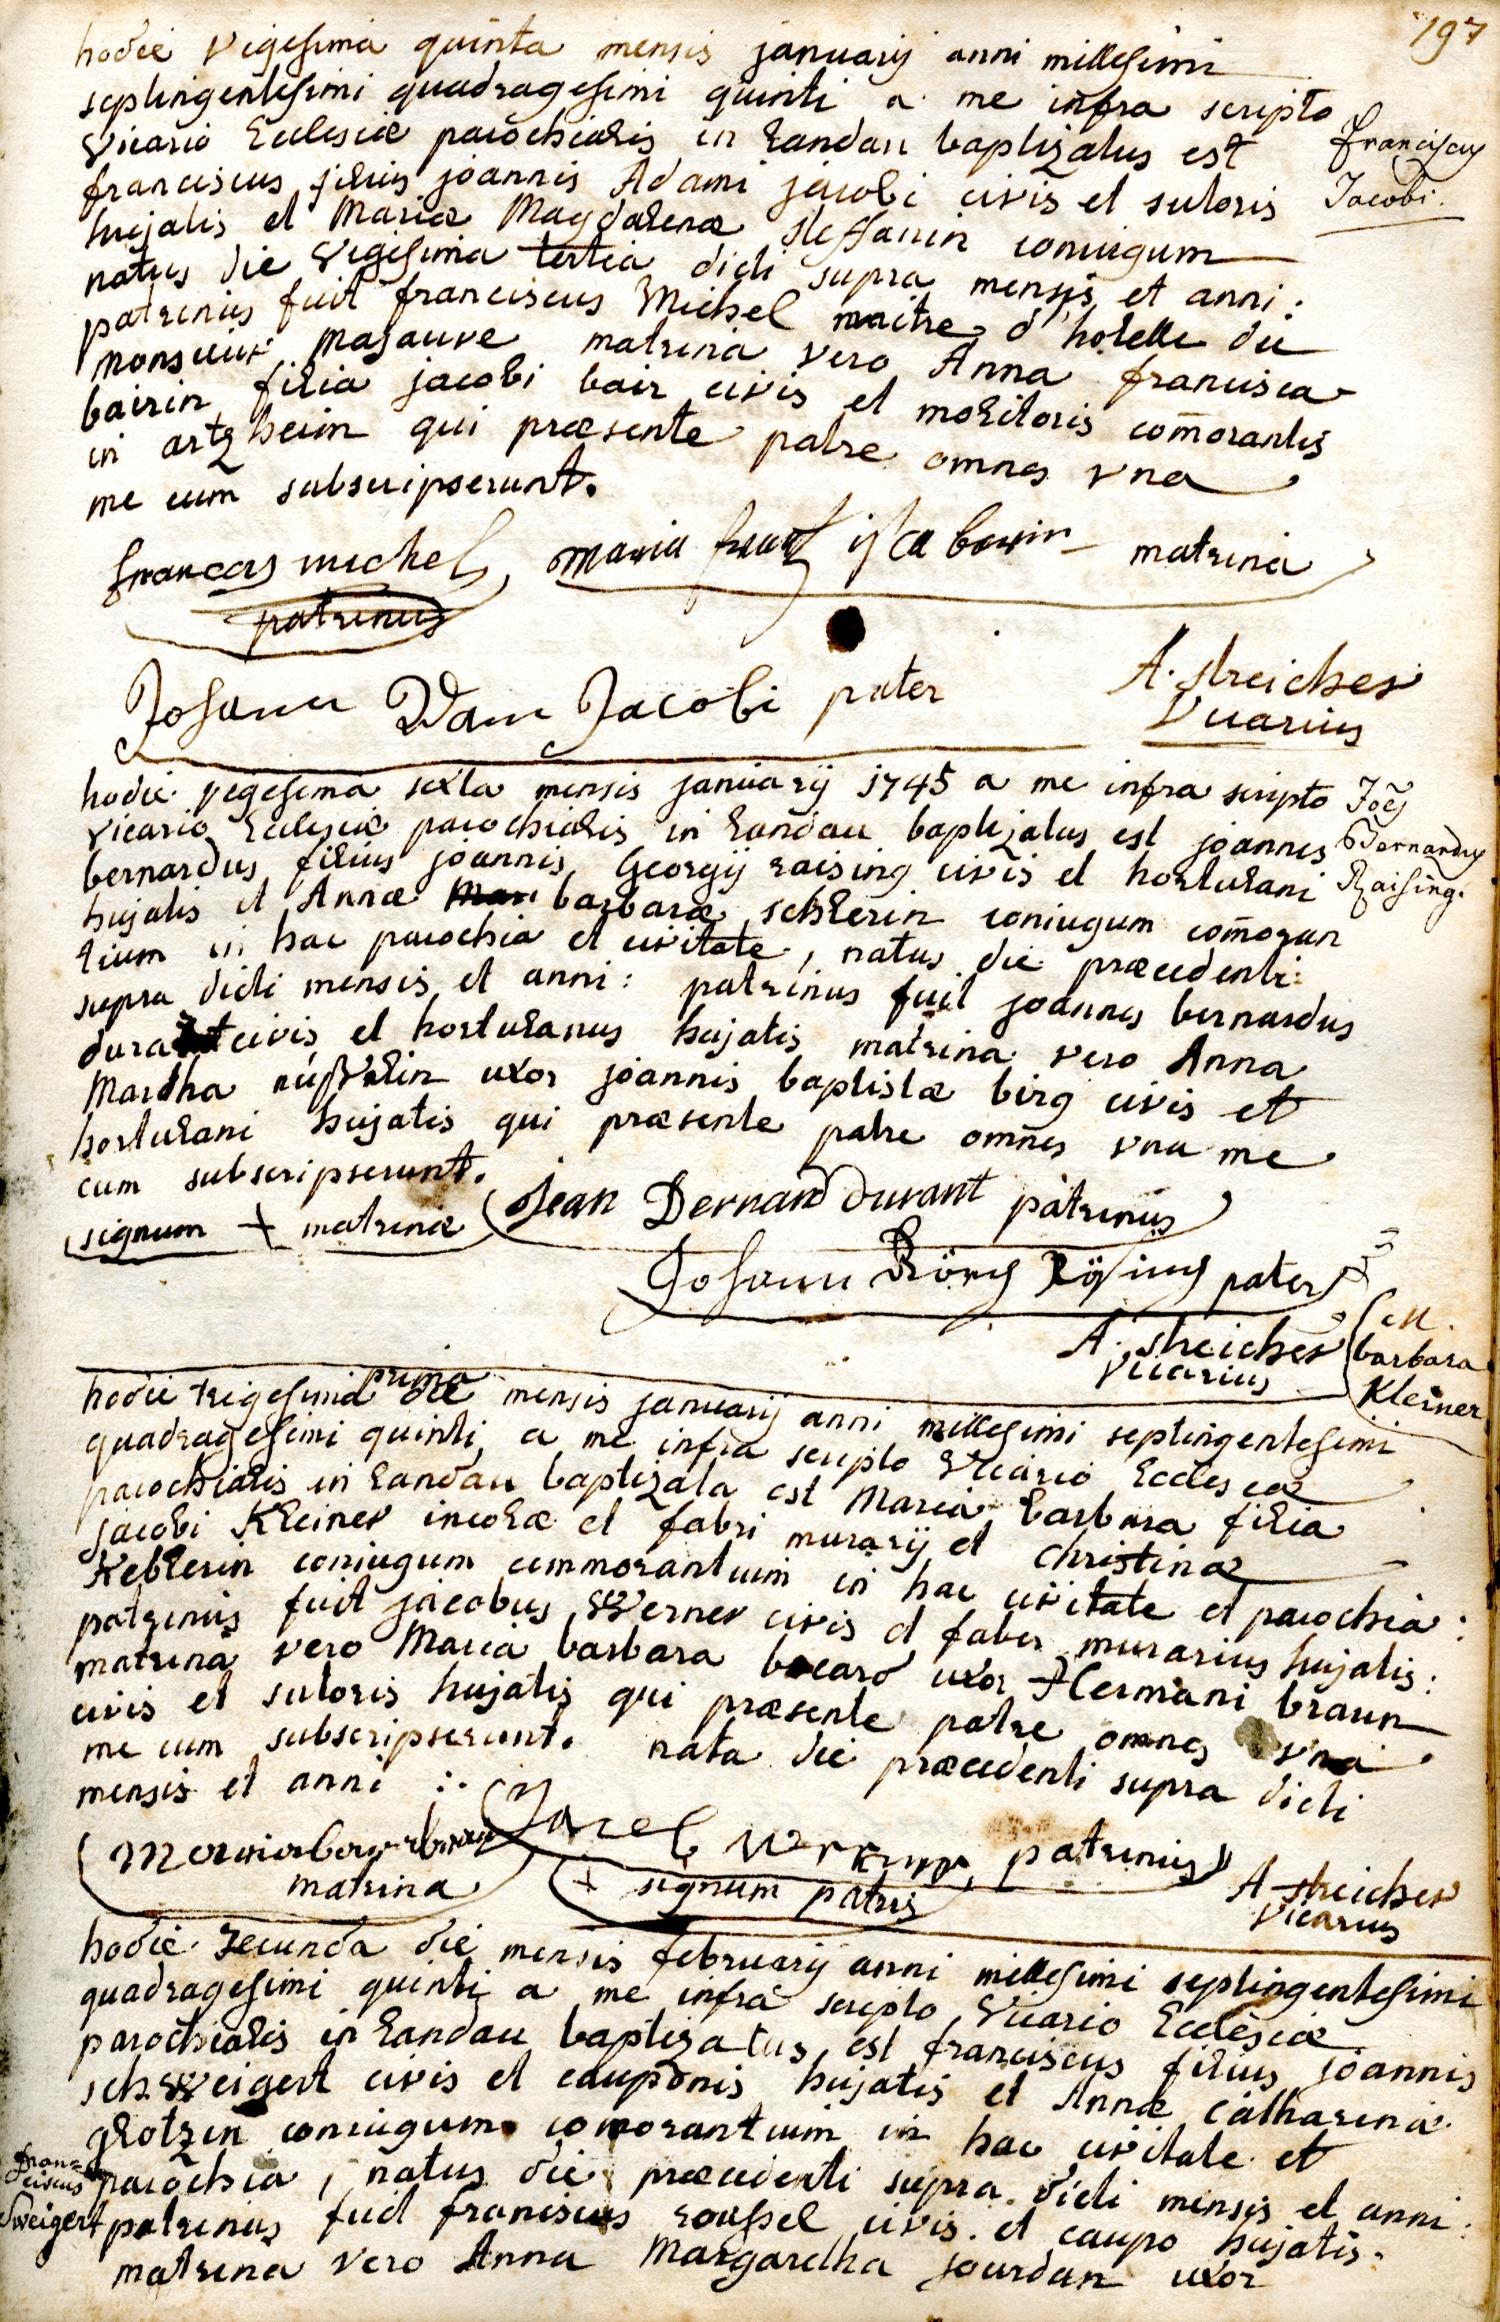 197
hodie vigesima quinta mensis januarij anni millesimi
septingentesimi quadragesimi quinti a me infra scripto
Vicario Ecclesiæ parochialis in Landau baptizatus est
franciscus filius joannis Adami jacobi civis et sutoris
hujatis et Mariæ Magdalenæ steffanin coniugum
natus die vigesima tertia dicti supra mensis et anni.
patrinus fuit franciscus Michel maitre d'hotelle du
monsieur Masauve matrina vero Anna francisca
bairin filia jacobi bair civis et molitoris com̄orantis
in artzheim qui præsente patre omnes vna
me cum subscripserunt.
Franciscus
Jacobi.
francois michel, maria frantzisca bairin matrina
patrinus
Johann Adam Jacobi pater
A. streicher
Vicarius
hodie vigesima sexta mensis januarij 1745 a me infra scripto
Vicario Ecclesiæ parochialis in Landau baptizatus est joannes
bernardus filius joannis Georgij raising civis et hortulani
hujatis et Annæ barbaræ schlerin coniugum com̄oran
tium in hac parochia et civitate, natus die præcedenti
supra dicti mensis et anni: patrinus fuit joannes bernardus
durant civis et hortulanus hujatis matrina vero Anna
Martha uxor joannis baptistæ birg civis et
hortulani hujatis qui præsente patre omnes vna me
cum subscripserunt.
Joēs
Bernardus
Raising.
signum + matrinæ
Jean Bernard durant patrinus
Johann Görg Rösing pater
A. streicher
Vicarius
M.
barbara
Kleiner
hodie trigesima prima die mensis januarij anni millesimi septingentesimi
quadragesimi quinti a me infra scripto Vicario Ecclesiæ
parochialis in Landau baptizata est Maria barbara filia
jacobi Kleiner incolæ et fabri murarij et christinæ
Keblerin coniugum commorantium in hac civitate et parochia:
patrinus fuit jacobus Werner civis et faber murarius hujatis:
matrina vero Maria barbara bocard uxor Hermani braun
civis et sutoris hujatis qui præsente patre omnes vna
me cum subscripserunt. nata die præcedenti supra dicti
mensis et anni :.
matrina
Jacob patrinus
+ signum patris
A streicher
Vicarius
hodie secunda die mensis februarij anni millesimi septingentesimi
quadragesimi quinti a me infra scripto Vicario Ecclesiæ
parochialis in Landau baptizatus est franciscus filius joannis
schweigert civis et cauponis hujatis et Annæ catharinæ
glotzin coniugum comorantium in hac civitate et
parochia, natus die præcedenti supra dicti mensis et anni:
patrinus fuit franciscus roussel civis et caupo hujatis.
matrina vero Anna Margaretha jourdan uxor
fran=
ciscus
Sweigert